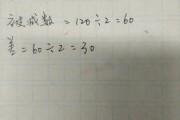 被减数 = 120÷2=60
差=60÷2=30